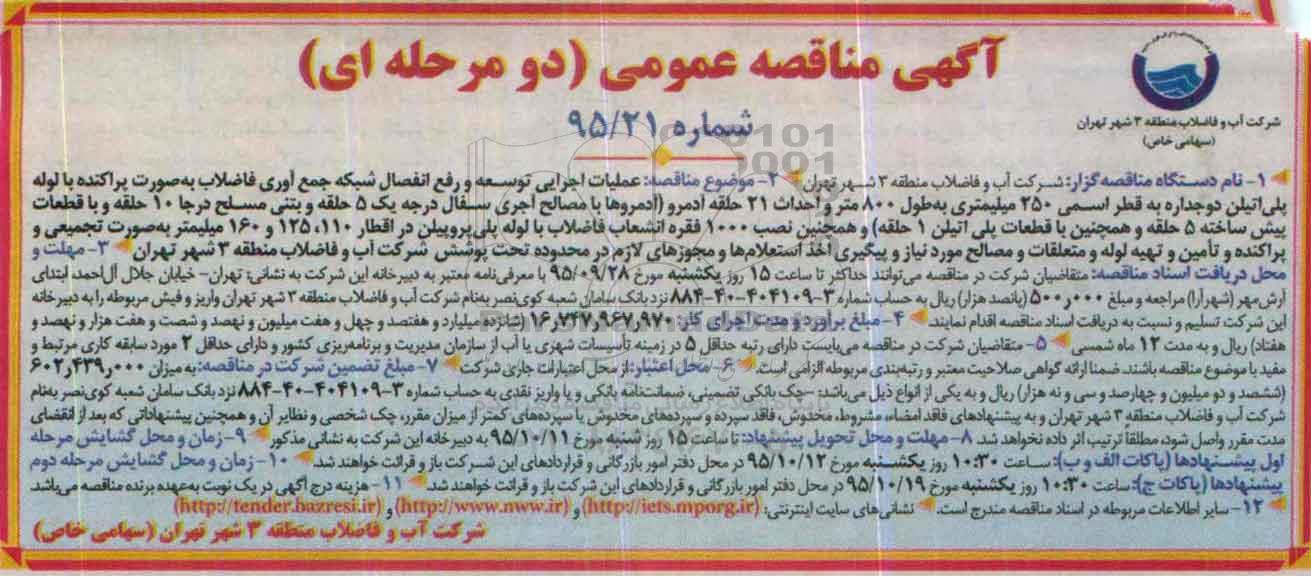 آگهی مناقصه عمومی (دو مرحله ای)
شماره ۹۵/۲۱
شرکت آب و فاضلاب منطقه ۳ شهر تهران
(سهامی خاص)
۱- نام دستگاه مناقصه گزار: شرکت آب و فاضلاب منطقه ۳ شهر تهران ۲- موضوع مناقصه: عملیات اجرایی توسعه و رفع انفصال شبکه جمع آوری فاضلاب به‌صورت پراکنده با لوله
پلی‌اتیلن دوجداره به قطر اسمی ۲۵۰ میلیمتری به‌طول ۸۰۰ متر و احداث ۲۱ حلقه آدمرو (آدمروها با مصالح آجری سفال درجه یک ۵ حلقه و بتنی مسلح درجا ۱۰ حلقه و با قطعات
پیش ساخته ۵ حلقه و همچنین با قطعات پلی اتیلن ۱ حلقه) و همچنین نصب ۱۰۰۰ فقره انشعاب فاضلاب با لوله پلی‌پروپیلن در اقطار ۱۱۰، ۱۲۵ و ۱۶۰ میلیمتر به‌صورت تجمیعی و
پراکنده و تأمین و تهیه لوله و متعلقات و مصالح مورد نیاز و پیگیری اخذ استعلام‌ها و مجوزهای لازم در محدوده تحت پوشش شرکت آب و فاضلاب منطقه ۳ شهر تهران ۳- مهلت و
محل دریافت اسناد مناقصه: متقاضیان شرکت در مناقصه می‌توانند حداکثر تا ساعت ۱۵ روز یکشنبه مورخ ۹۵/۰۹/۲۸ با معرفی‌نامه معتبر به دبیرخانه این شرکت به نشانی: تهران- خیابان جلال آل‌احمد، ابتدای
آرش‌مهر (شهرآرا) مراجعه و مبلغ ۵۰۰ر۰۰۰ (پانصد هزار) ریال به حساب شماره ۳-۴۰۴۱۰۹-۴۰-۸۸۴ نزد بانک سامان شعبه کوی‌نصر به‌نام شرکت آب و فاضلاب منطقه ۳ شهر تهران واریز و فیش مربوطه را به دبیرخانه
این شرکت تسلیم و نسبت به دریافت اسناد مناقصه اقدام نمایند. ۴- مبلغ برآورد و مدت اجرای کار: ۱۶ر۷۴۷ر۹۶۷ر۹۷۰ (شانزده میلیارد و هفتصد و چهل و هفت میلیون و نهصد و شصت و هفت هزار و نهصد و
هفتاد) ریال و به مدت ۱۲ ماه شمسی ۵- متقاضیان شرکت در مناقصه می‌بایست دارای رتبه حداقل ۵ در زمینه تأسیسات شهری یا آب از سازمان مدیریت و برنامه‌ریزی کشور و دارای حداقل ۲ مورد سابقه کاری مرتبط و
مفید با موضوع مناقصه باشند. ضمنا ارائه گواهی صلاحیت معتبر و رتبه‌بندی مربوطه الزامی است. ۶- محل اعتبار: از محل اعتبارات جاری شرکت ۷- مبلغ تضمین شرکت در مناقصه: به میزان ۶۰۲ر۴۳۹ر۰۰۰
(ششصد و دو میلیون و چهارصد و سی و نه هزار) ریال و به یکی از انواع ذیل می‌باشد: -چک بانکی تضمینی، ضمانتنامه بانکی و یا واریز نقدی به حساب شماره ۳-۴۰۴۱۰۹-۴۰-۸۸۴ نزد بانک سامان شعبه کوی‌نصر به‌نام
شرکت آب و فاضلاب منطقه ۳ شهر تهران و به پیشنهادهای فاقد امضاء، مشروط، مخدوش، فاقد سپرده و سپرده‌های مخدوش یا سپرده‌های کمتر از میزان مقرر، چک شخصی و نظایر آن و همچنین پیشنهاداتی که بعد از انقضای
مدت مقرر واصل شود، مطلقاً ترتیب اثر داده نخواهد شد. ۸- مهلت و محل تحویل پیشنهاد: تا ساعت ۱۵ روز شنبه مورخ ۹۵/۱۰/۱۱ به دبیرخانه این شرکت به نشانی مذکور ۹- زمان و محل گشایش مرحله
اول پیشنهادها (پاکات الف و ب): ساعت ۱۰:۳۰ روز یکشنبه مورخ ۹۵/۱۰/۱۲ در محل دفتر امور بازرگانی و قراردادهای این شرکت باز و قرائت خواهند شد. ۱۰- زمان و محل گشایش مرحله دوم
پیشنهادها (پاکات ج): ساعت ۱۰:۳۰ روز یکشنبه مورخ ۹۵/۱۰/۱۹ در محل دفتر امور بازرگانی و قراردادهای این شرکت باز و قرائت خواهند شد. ۱۱- هزینه درج آگهی در یک نوبت به‌عهده برنده مناقصه می‌باشد.
۱۲- سایر اطلاعات مربوطه در اسناد مناقصه مندرج است. نشانی‌های سایت اینترنتی: (http://iets.mporg.ir) و (http://www.nww.ir) و (http://tender.bazresi.ir)
شرکت آب و فاضلاب منطقه ۳ شهر تهران (سهامی خاص)